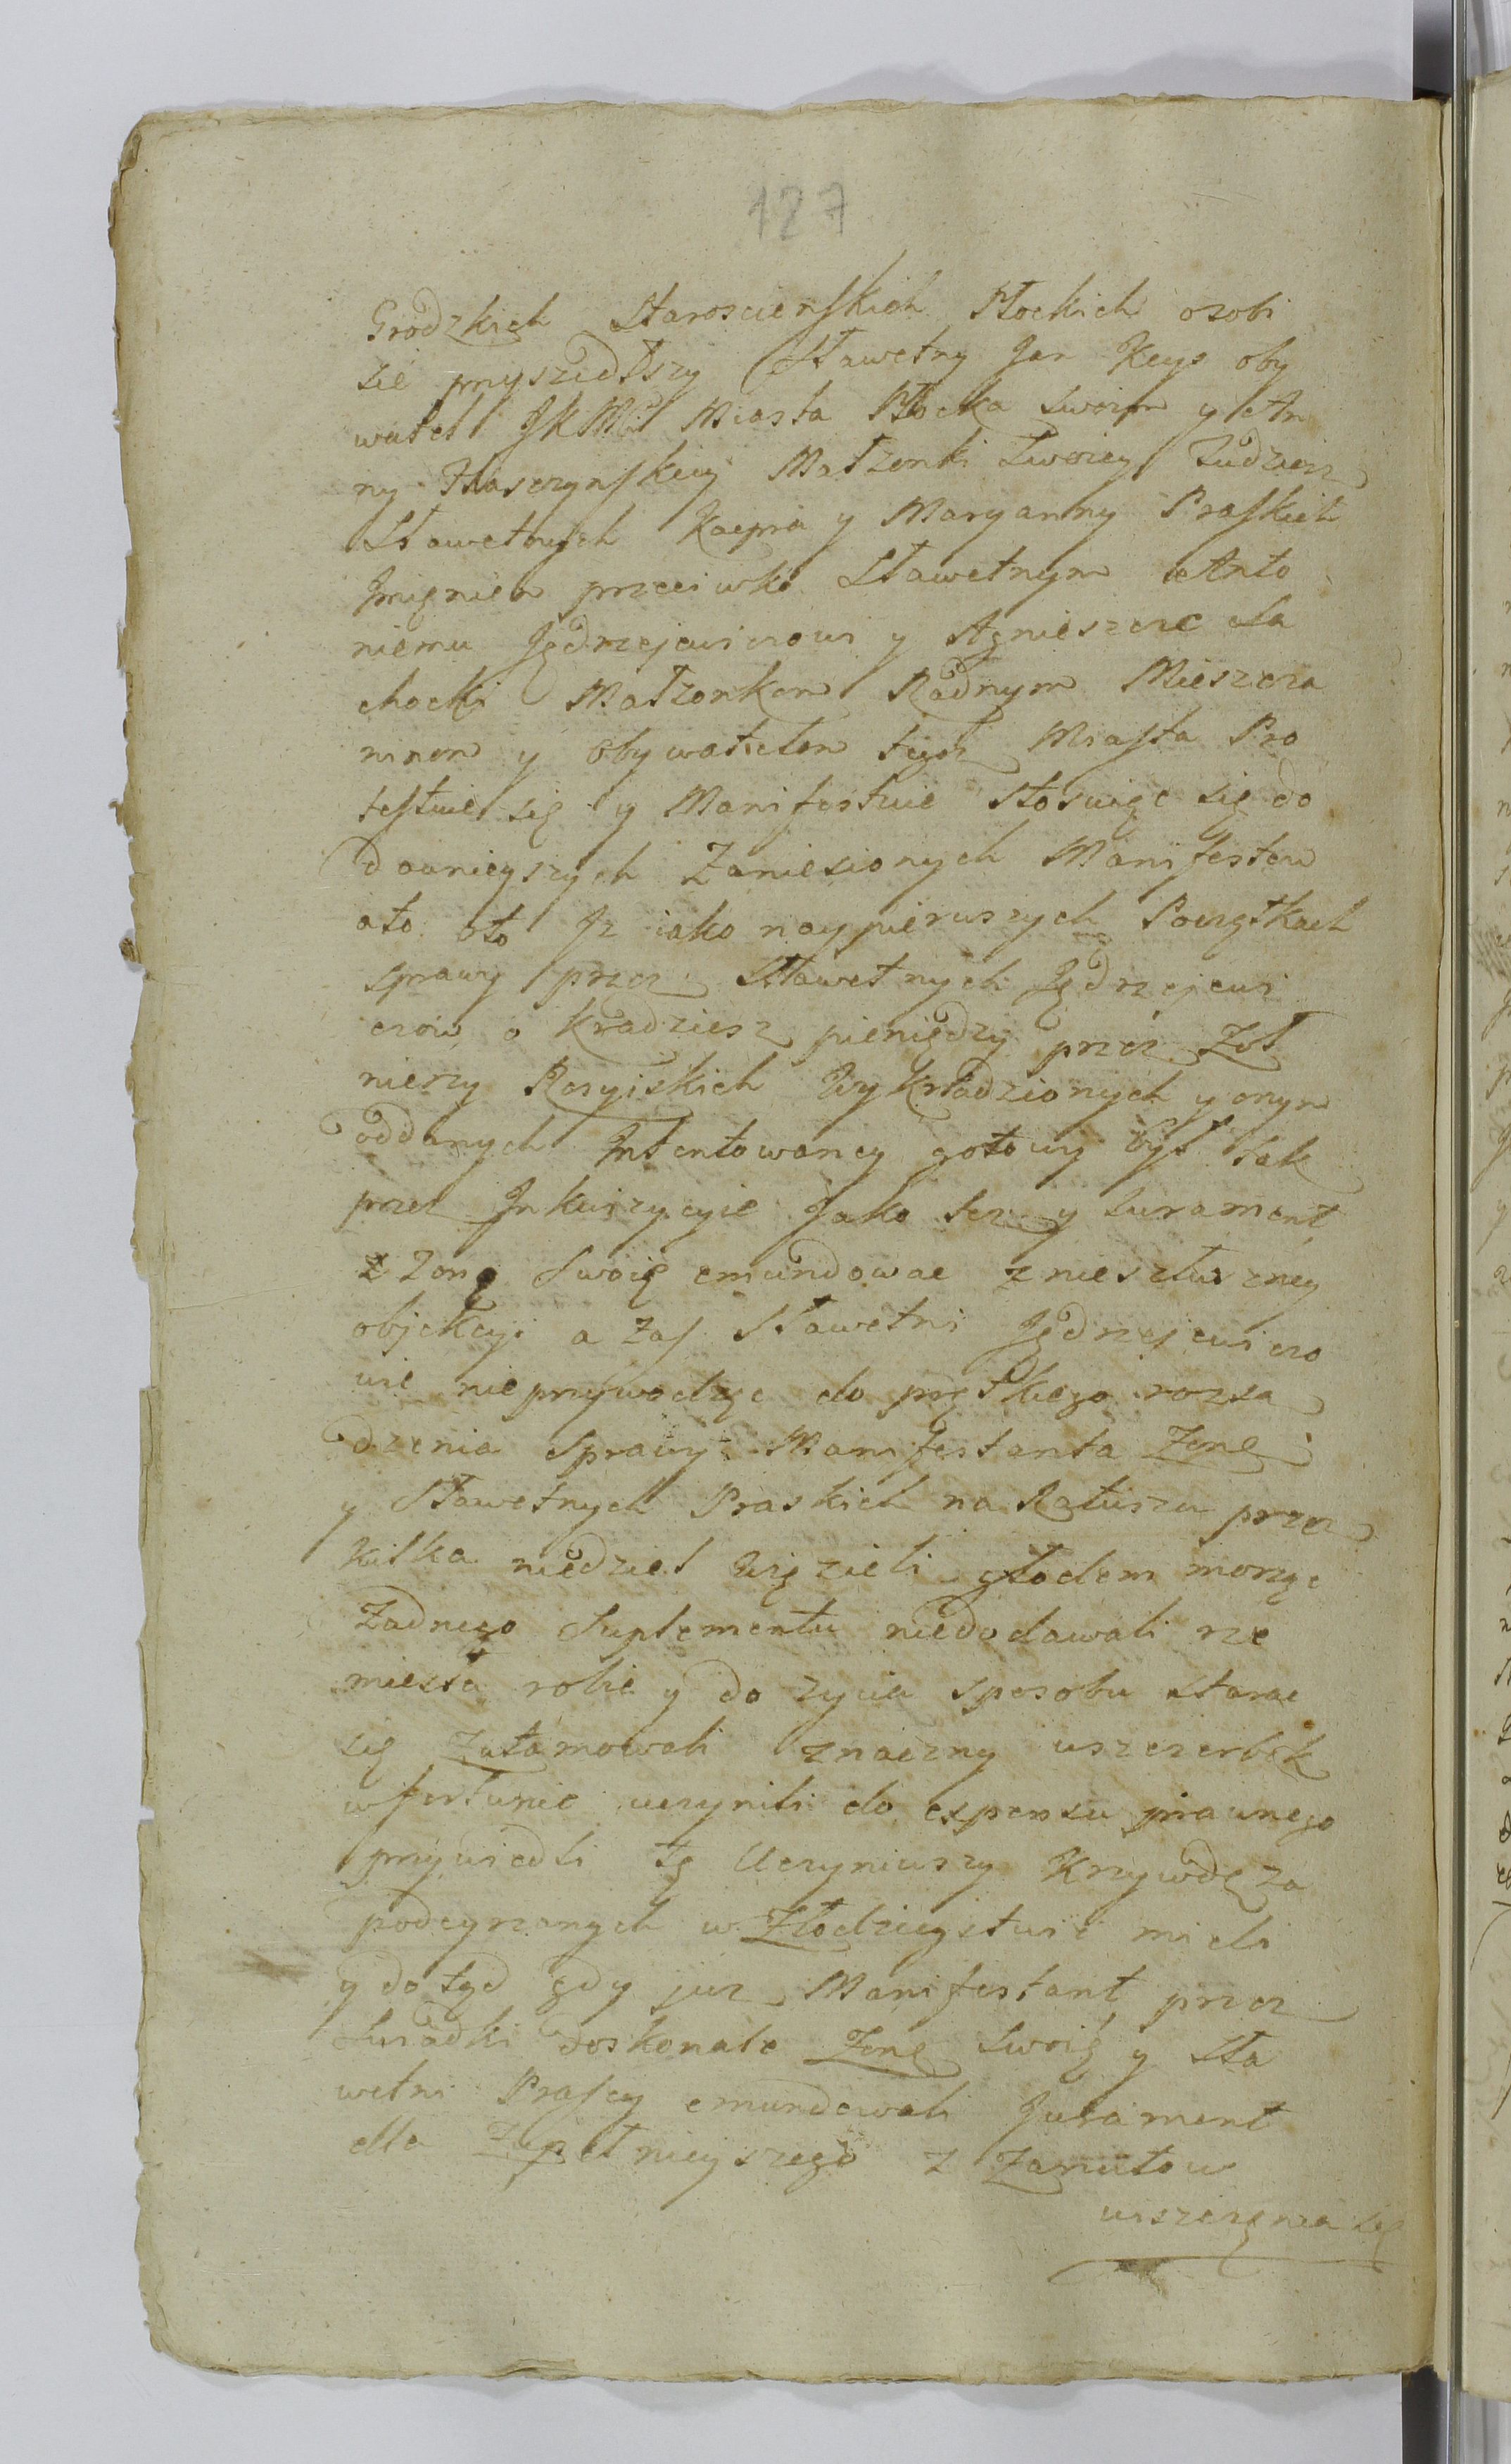 127
Grodzkich Staroscienskich Płockich osobi
sie przyszedłszy Sławetny Jan Keys oby
watel JKMci Miasta Płocka swoim y An
ny Małzonki swoiey Tudziesz
Sławetnych Kacpra y Maryanny Praskich
Imięniem przeciwko Sławetnym Anto
niemu Jędrzejewiczowi y Agnieszce Sa
chocki Małzonkom Radnym Miescza
ninom y Obywatelom tegoz Miasta Pro
testuie się y Manifestuie stosuięc się do
dawnieyszych Zaniesionych Manifestow
ato oto Jz iako naypierwszych Początkach
sprawy przez Sławetnych Jędrzejewi
czow o kradziesz pieniędzy przez Zoł
nierzy Rosyiskich Wykradzionych y onym
oddanych Intentowaney gotowy był tak
przez Inkwizycyie Jako tez y Jurament
z Zoną Swoię emundowac z niesłuszney
objekcyi a zas Sławetni Jędrzejewiczo
wie nieprzywodząc do prętkiego rozsa
dzenia Sprawy Manifestanta Zonę
y Sławetnych Praskich na Ratuszu przez
kilka niedziel więzieli głodem morząc
Zadnego Suplementu niedodawali rze
miesła robic y do zycia sposobu starac
się Zatamowali znaczny uszczerbek
w fortunie uczynili do expensu prawnego
przywiedli tę Uczyniwszy Krzywdę za
podeyrzanych w Złodzieystwie mieli
y do tąd gdy juz Manifestant przez
Swiadki doskonale Zonę swoię y Sła
wetni Prascy emundowali Jurament
dla Zupełnieyszego z Zarzutow